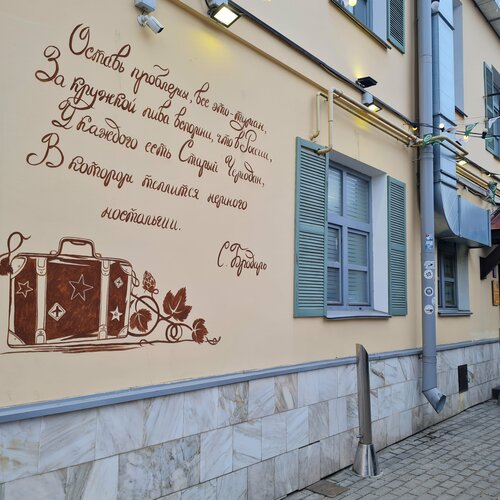 Оставь проблемы, все это-туман,
За кружкой пива вспомни, что в России,
У каждого есть Старый Чемодан,
В котором теплится немного
ностальгии.
С. Бродило